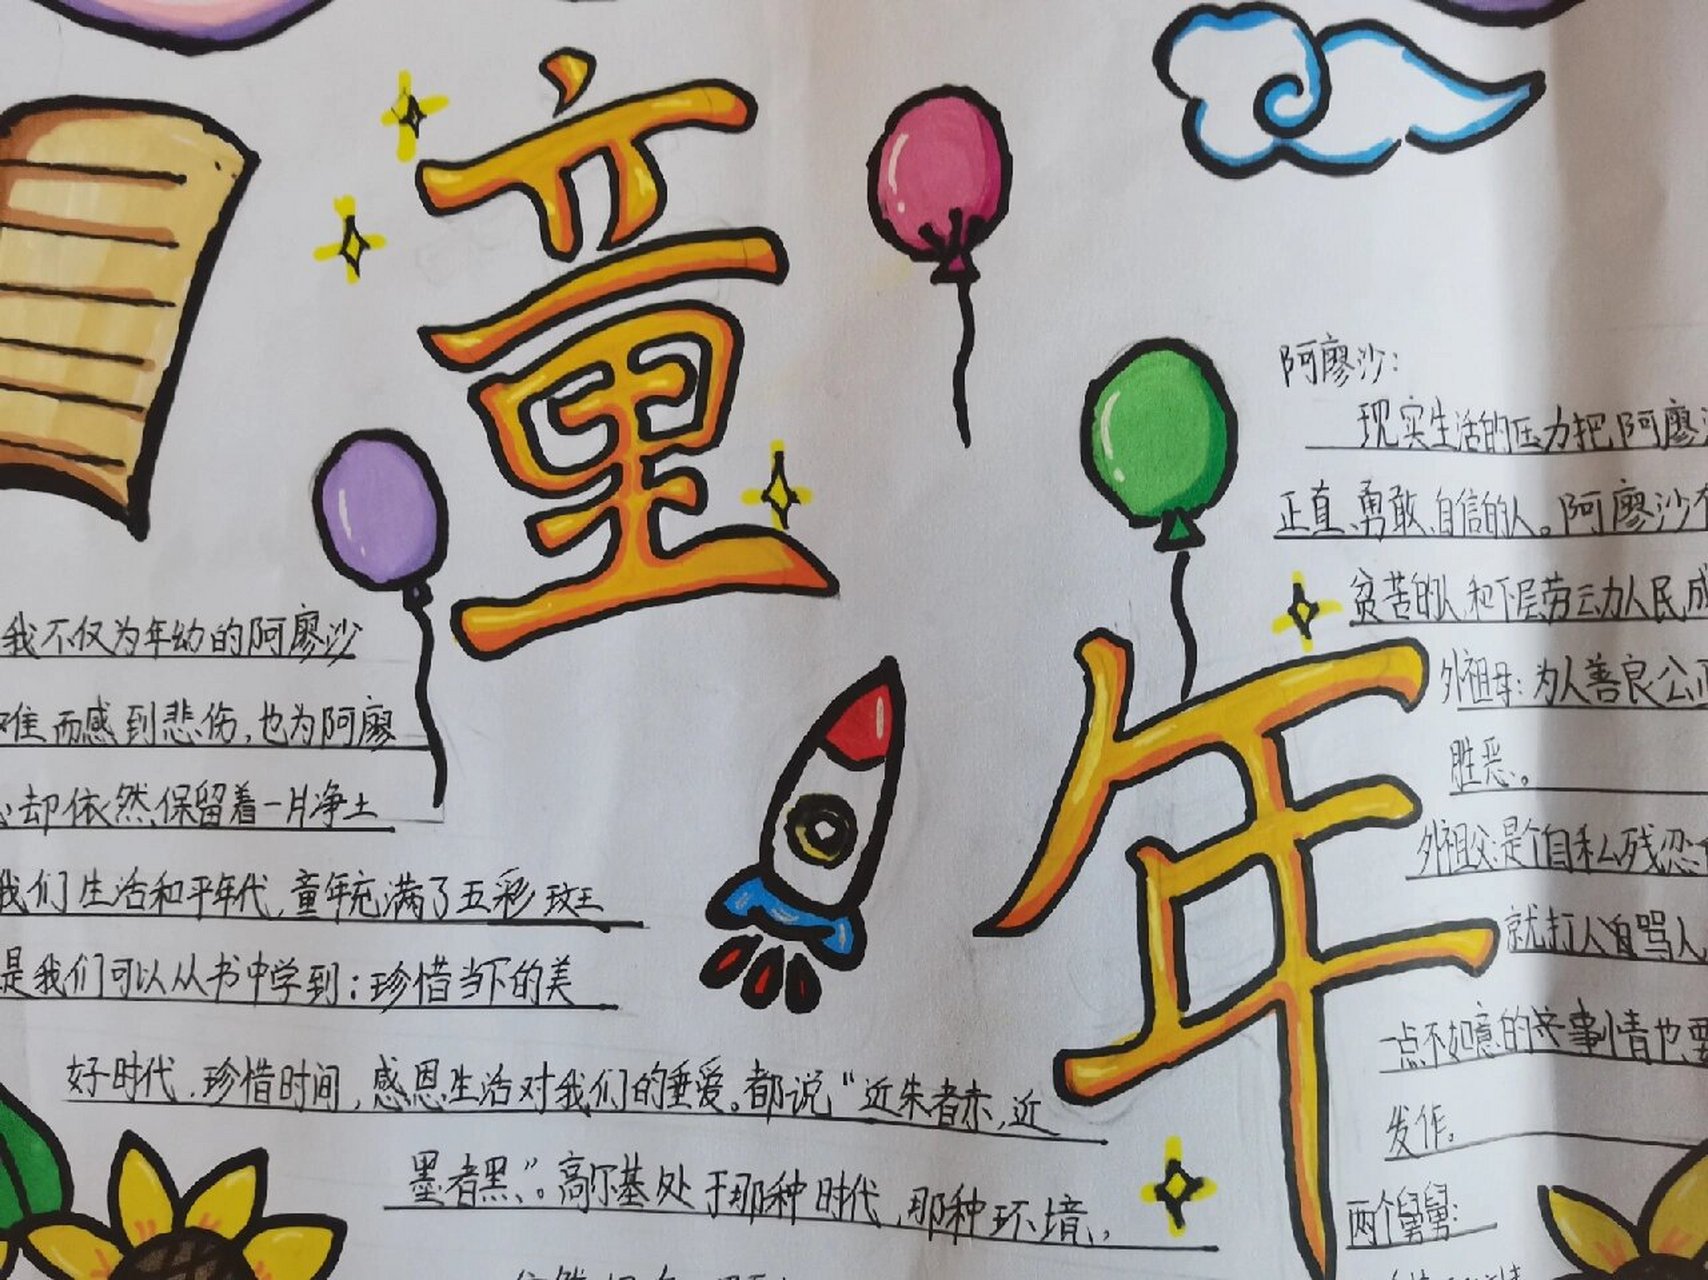 童年
我不仅为年幼的阿廖沙
难而感到悲伤,也为阿廖
却依然保留着一片净土
我们生活和平年代,童年充满了五彩斑
是我们可以从书中学到:珍惜当下的美
好时代,珍惜时间,感恩生活对我们的垂爱。都说“近朱者赤,近
墨者黑”。高尔基处于那种时代,那种环境,
阿廖沙:
现实生活的压力把阿廖
正直、勇敢、自信的人。阿廖沙
贫苦的人和下层劳动人民成
外祖母:为人善良公正
胜恶。
外祖父是个自私残忍
就打人骂人
一点不如意的事情也要
发作。
两个舅舅: